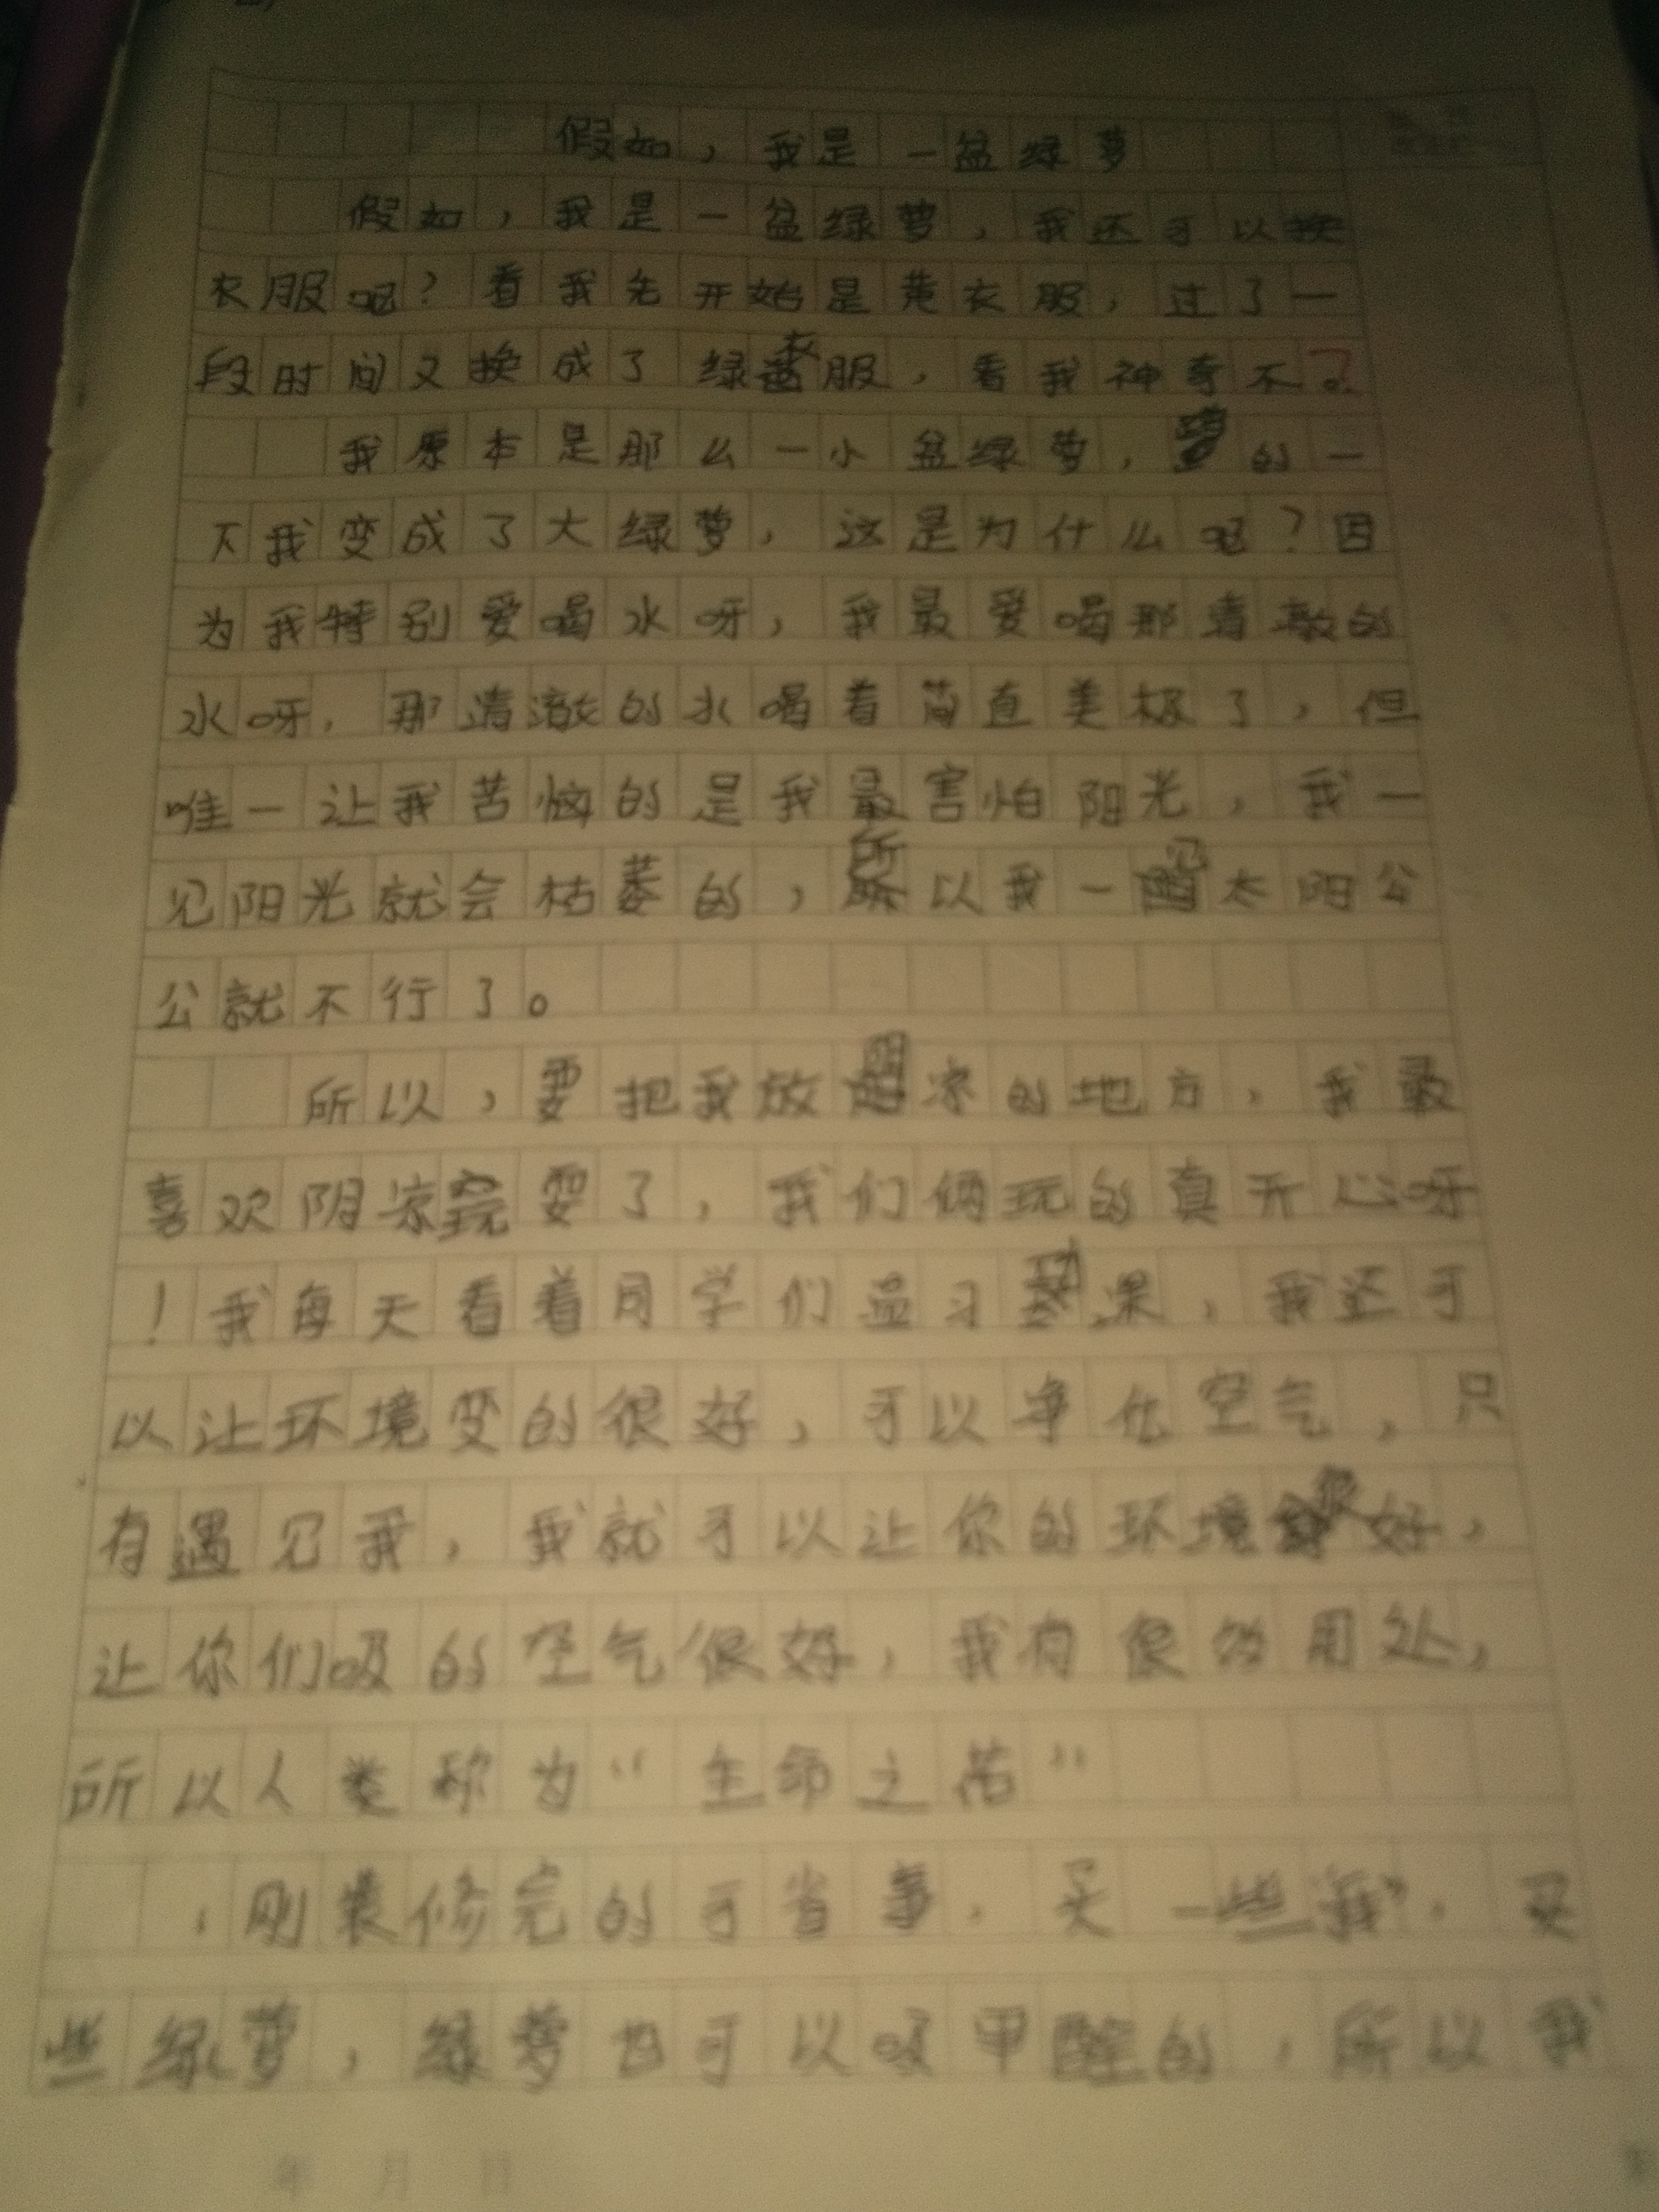 假如，我是一盆绿萝
假如，我是一盆绿萝，我还可以换
衣服呢？看我先开始是黄衣服，过了一
段时间又换成了绿衣服，看我神奇不。
我原本是那么一小盆绿萝，的一
下我变成了大绿萝，这是为什么呢？因
为我特别爱喝水呀，我最爱喝那清澈的
水呀，那清澈的水喝着简直美极了，但
唯一让我苦恼的是我最害怕阳光，我一
见阳光就会枯萎的，所以我一见太阳公
公就不行了。
所以，要把我放阴凉的地方，我最
喜欢阴凉玩耍了，我们俩玩的真开心呀
！我每天看着同学们温习功课，我还可
以让环境变的很好，可以净化空气，只
有遇见我，我就可以让你的环境很好，
让你们吸的空气很好，我有很的用处，
所以人类称为“生命之花”
，刚装修完的可省事，买一些我，买
些绿萝，绿萝也可以吸甲醛的，所以我
年 月 日